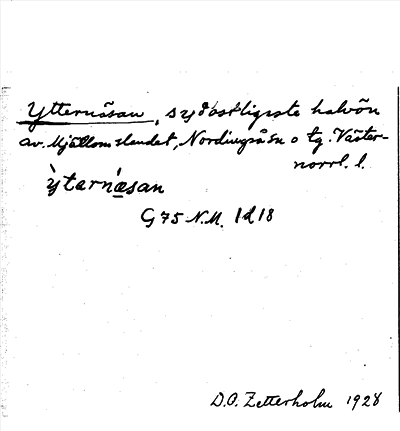 Ytternäsan, sydostligaste halvön
av Mjällomslandet, Nordingrå sn o tg. Väster-
norrl. l.
ỳtarnǽsan
G 75 N.M. 1d18
D.O. Zetterholm 1928